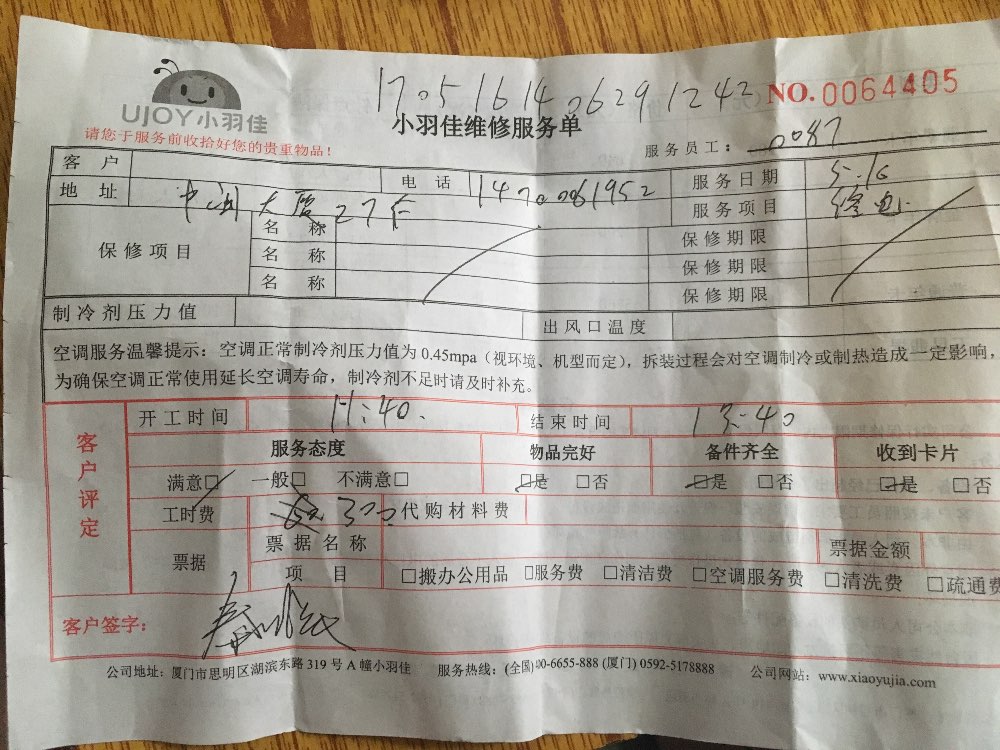 1705161406291242
NO.0064405
UJOY小羽佳
小羽佳维修服务单
请您于服务前收拾好您的贵重物品！
服务员工： 0087
客户 电话 14700061952 服务日期 5.16
地址 大厦27 服务项目 修电
保修项目 名称 保修期限
名称 保修期限
名称 保修期限
制冷剂压力值 出风口温度
空调服务温馨提示：空调正常制冷剂压力值为 0.45mpa（视环境、机型而定），拆装过程会对空调制冷或制热造成一定影响，
为确保空调正常使用延长空调寿命，制冷剂不足时请及时补充。
客户评定
开工时间 11:40. 结束时间 13:40
服务态度 物品完好 备件齐全 收到卡片
满意□ 一般□ 不满意□ □是 □否 □是 □否 □是 □否
工时费 300 代购材料费
票据 票据名称 票据金额
项目 □搬办公用品 □服务费 □清洁费 □空调服务费 □清洗费 □疏通费
客户签字：
公司地址：厦门市思明区湖滨东路 319 号 A 幢小羽佳 服务热线：(全国)400-6655-888 (厦门) 0592-5178888 公司网站：www.xiaoyujia.com